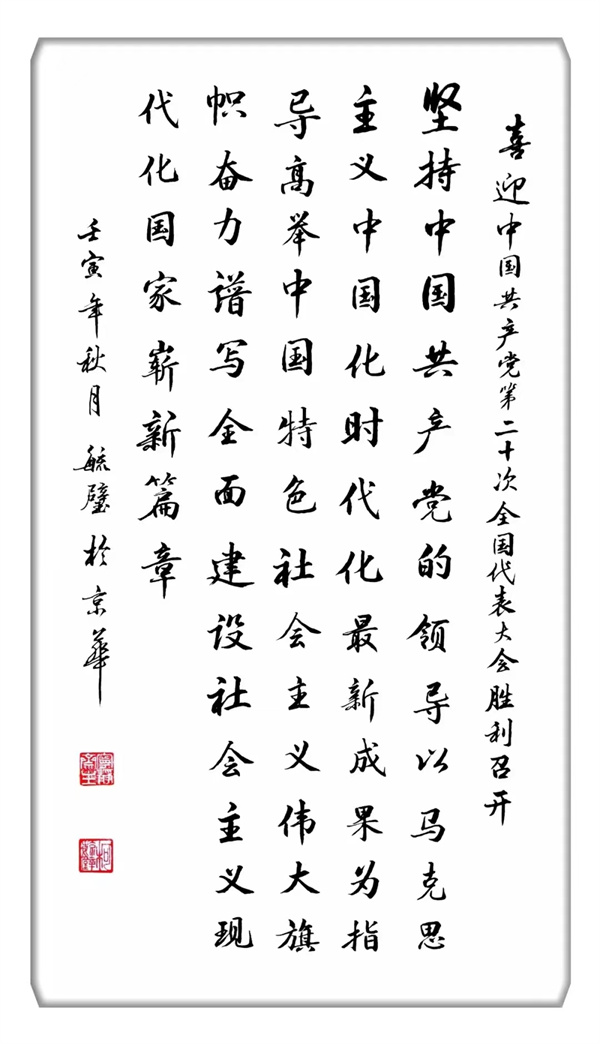 喜迎中国共产党第二十次全国代表大会胜利召开
坚持中国共产党的领导以马克思
主义中国化时代化最新成果为指
导高举中国特色社会主义伟大旗
帜奋力谱写全面建设社会主义现
代化国家崭新篇章
壬寅年秋月毓璧於京华